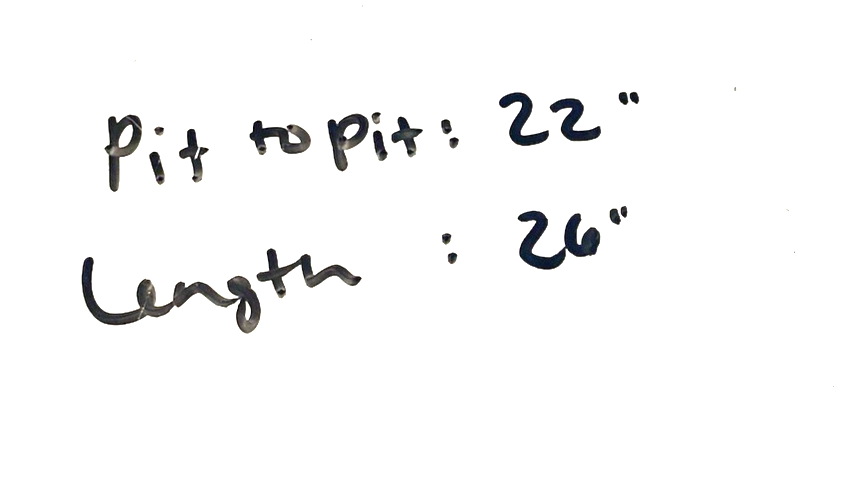 Pit to pit: 22"
Length : 26"